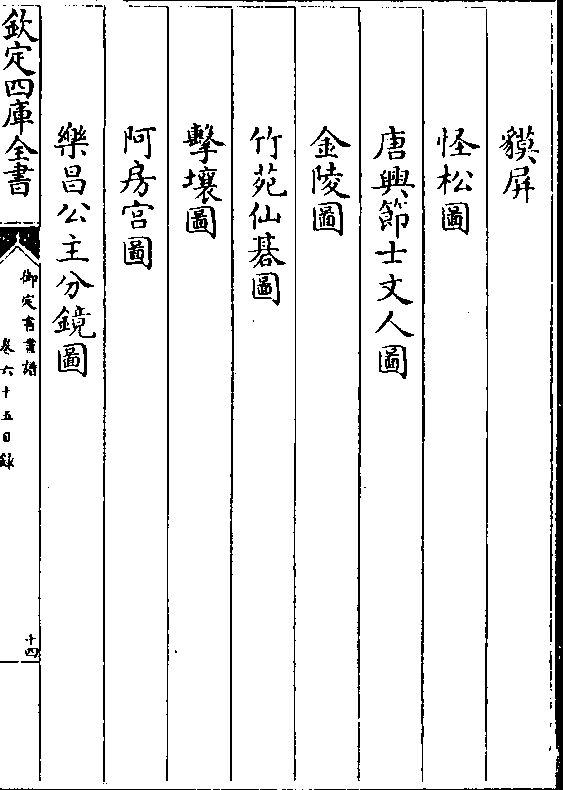 貘屏
怪松圖
唐興節士文人圖
金陵圖
竹苑仙碁圖
擊壤圖
阿房宮圖
樂昌公主分鏡圖
欽定四庫全書
御定書畫譜
卷六十五目錄
十四